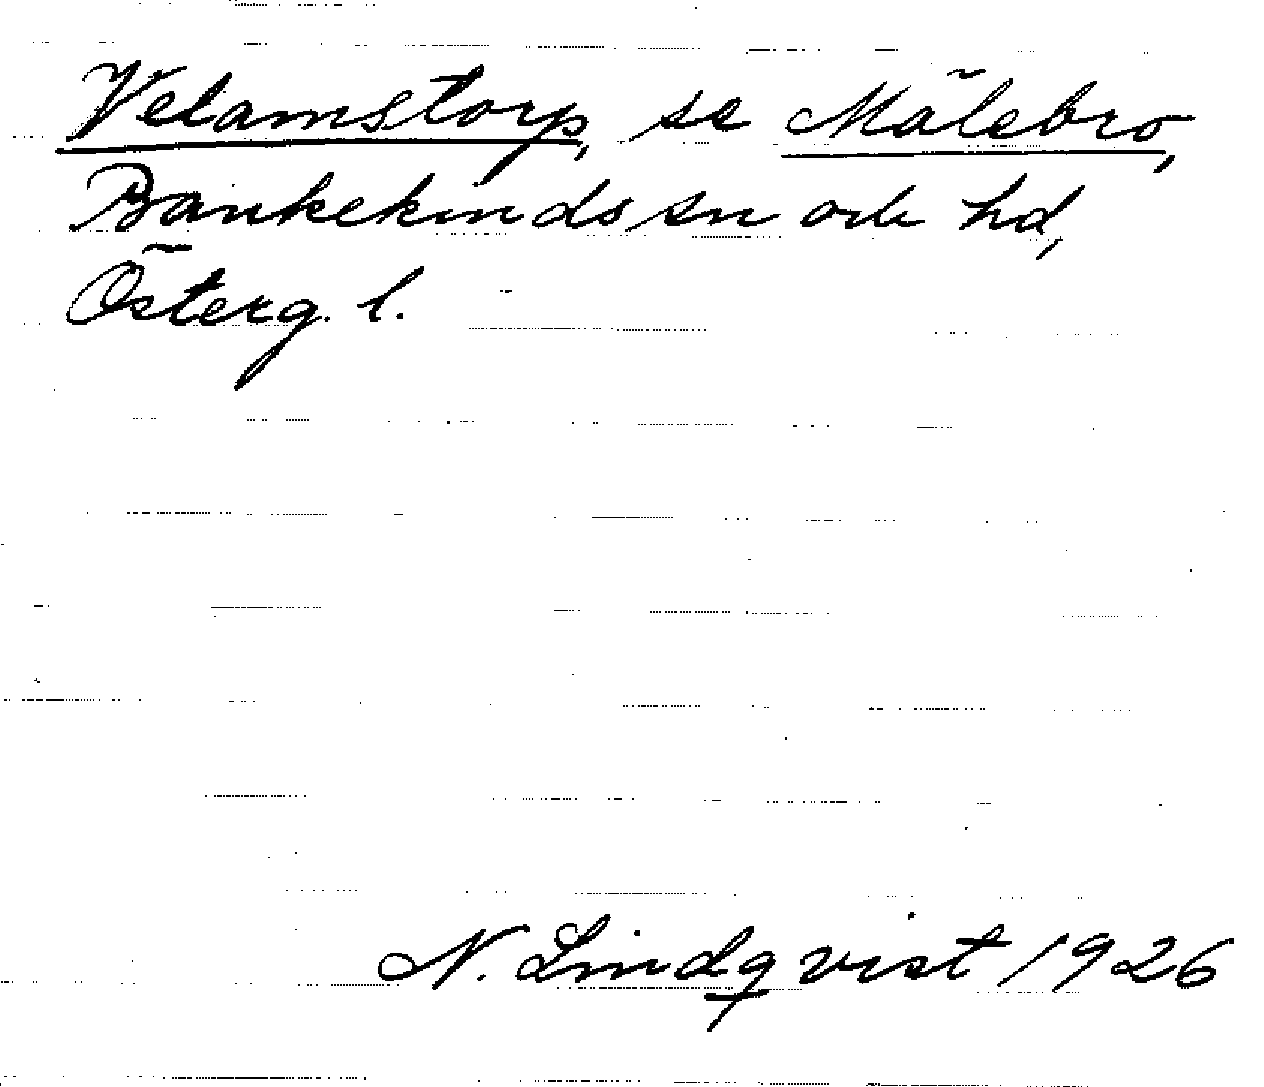 Velamstorp, se Mälebro,
Bankekinds sn och hd,
Österg. l.
N. Lindqvist 1926